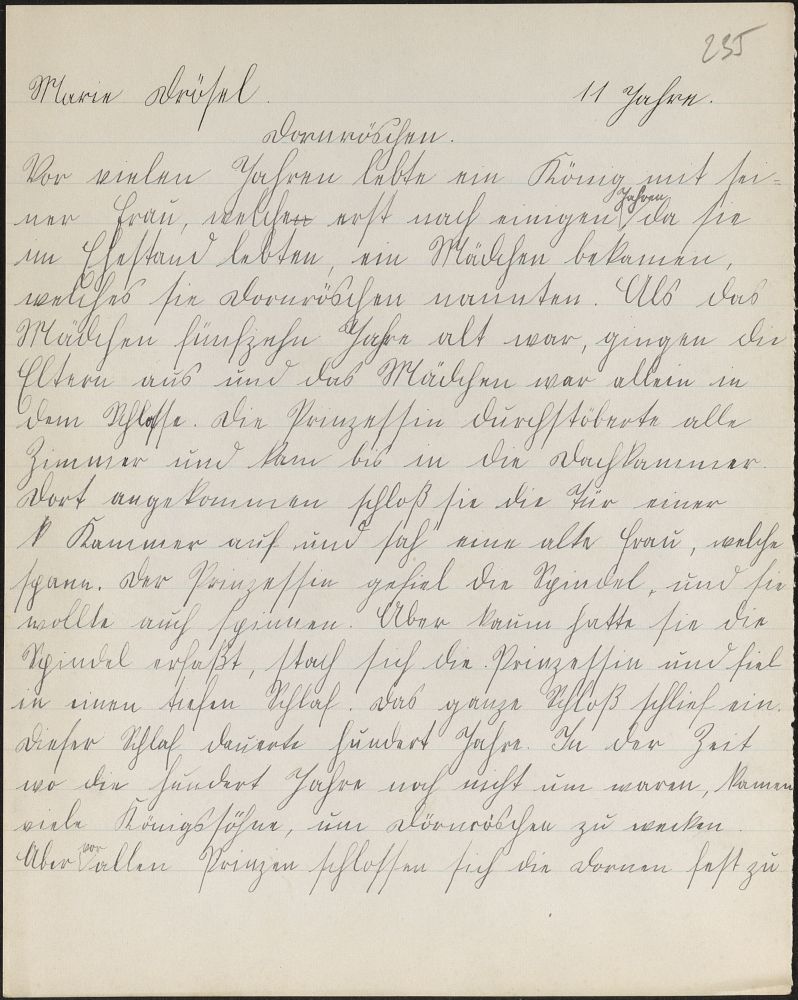 235
Marie Drösel. 11 Jahre.
Dornröschen.
Vor vielen Jahren lebte ein König mit sei=
ner Frau, welchen erst nach einigen Jahren da sie
im Ehestand lebten, ein Mädchen bekamen,
welches sie Dornröschen nannten. Als das
Mädchen fünfzehn Jahre alt war, gingen die
Eltern aus und das Mädchen war allein in
dem Schlosse. Die Prinzessin durchstöberte alle
Zimmer und kam bis in die Dachkammer.
Dort angekommen schloß sie die Tür einer
Kammer auf und sah eine alte Frau, welche
spann. Der Prinzessin gefiel die Spindel, und sie
wollte auch spinnen. Aber kaum hatte sie die
Spindel erfaßt, stach sich die Prinzessin und fiel
in einen tiefen Schlaf. Das ganze Schloß schlief ein.
Dieser Schlaf dauerte hundert Jahre. In der Zeit
wo die hundert Jahre noch nicht um waren, kamen
viele Königssöhne, um Dörnröschen zu wecken.
Aber vor allen Prinzen schlossen sich die Dornen fest zu